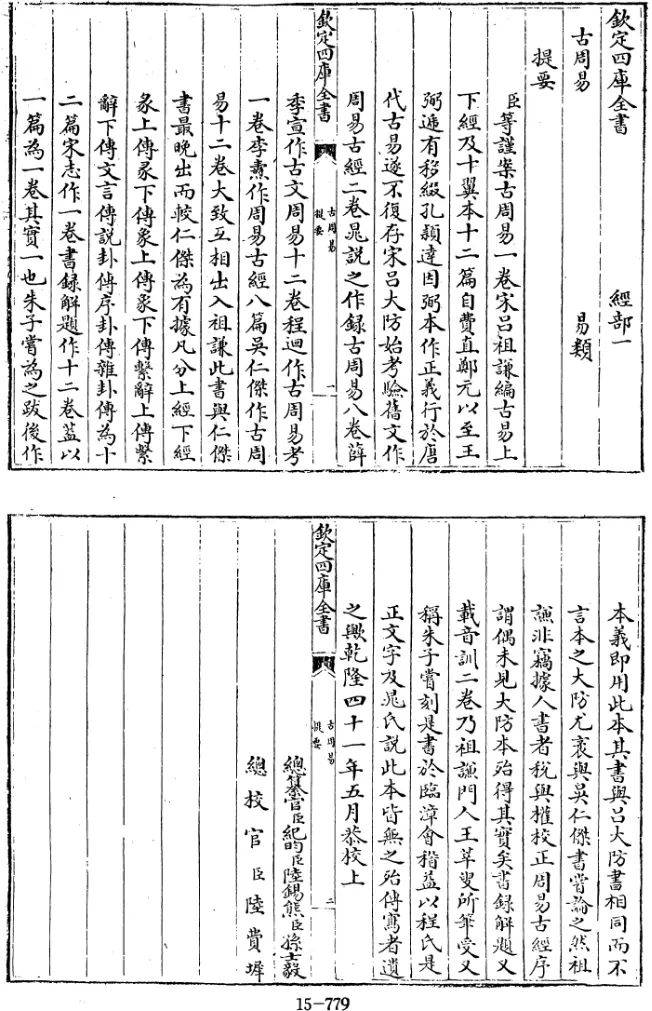 欽定四庫全書
經部一
古周易
易類
提要
臣等謹案古周易一卷宋吕祖謙編古易上
下經及十翼本十二篇自費直鄭元以至王
弼遞有移綴孔穎達因弼本作正義行於唐
代古易遂不復存宋吕大防始考驗舊文作
周易古經二卷晁説之作録古周易八卷薛
欽定四庫全書
古周易
提要
一
季宣作古文周易十二卷程迥作古周易考
一卷李燾作周易古經八篇吳仁傑作古周
易十二卷大致互相出入祖謙此書與仁傑
書最晚出而較仁傑為有據凡分上經下經
彖上傳彖下傳象上傳象下傳繫辭上傳繫
辭下傳文言傳説卦傳序卦傳雜卦傳為十
二篇宋志作一卷書録解題作十二卷葢以
一篇為一卷其實一也朱子嘗為之跋後作
本義即用此本其書與吕大防書相同而不
言本之大防尤袤與吳仁傑書嘗論之然祖
謙非竊據人書者税與權校正周易古經序
謂偶未見大防本殆得其實矣書録解題又
載音訓二卷乃祖謙門人王莘叟所筆受又
稱朱子嘗刻是書於臨漳會稽益以程氏是
正文字及晁氏説此本皆無之殆傳寫者遺
之歟乾隆四十一年五月恭校上
欽定四庫全書
古周易
提要
二
總纂官臣紀昀臣陸錫熊臣孫士毅
總校官臣陸費墀
15-779